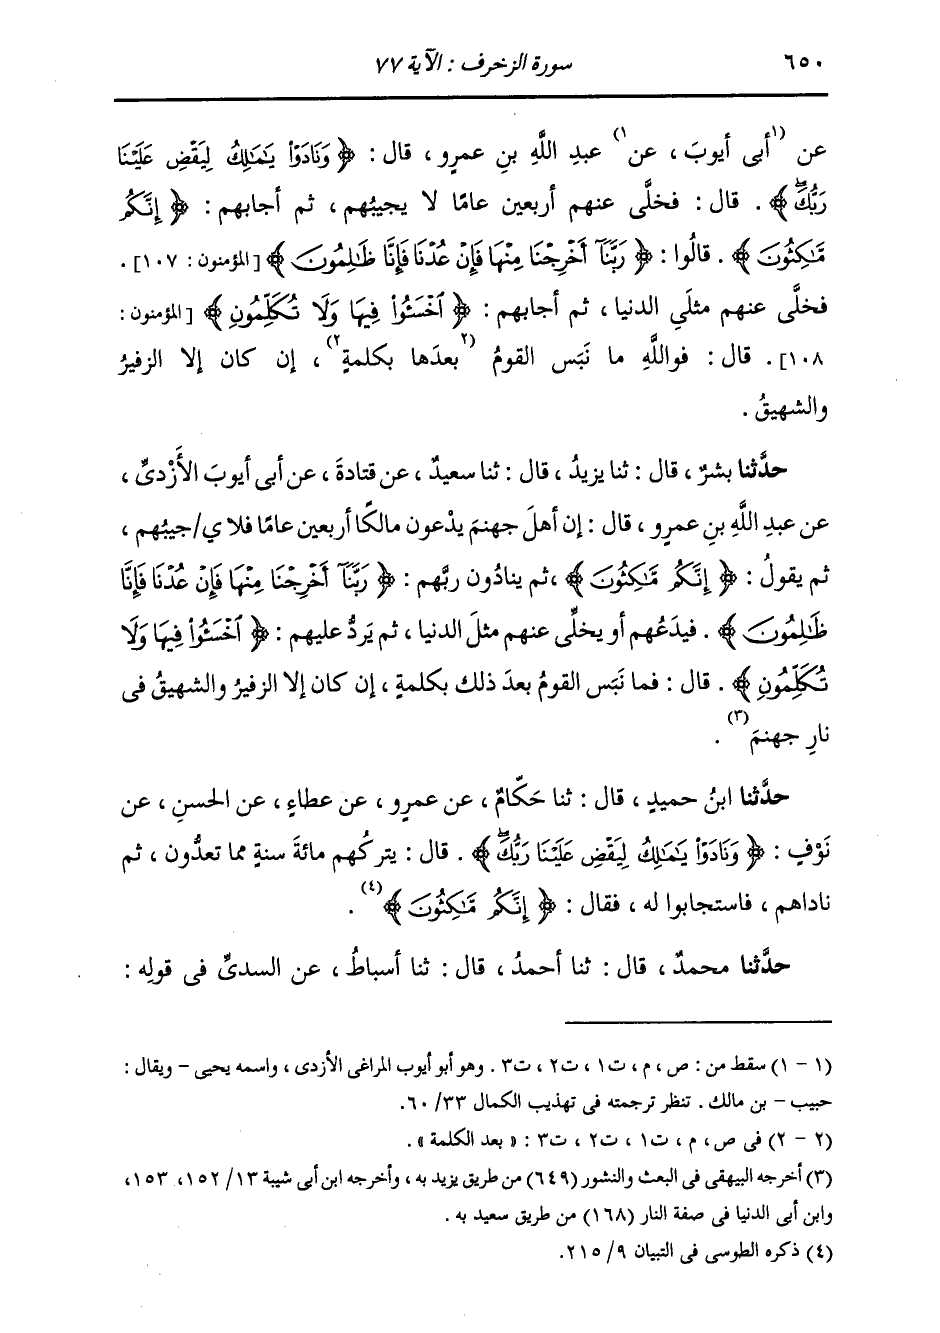 ٦٥٠ سورة الزخرف : الآية ٧٧
عن (١) أبى أيوبَ ، عن (١) عبدِ اللَّهِ بنِ عمرٍو ، قال : ﴿ وَنَادَوْا۟ يَـٰمَـٰلِكُ لِيَقْضِ عَلَيْنَا
رَبُّكَۖ ﴾ . قال : فخلَّى عنهم أربعين عامًا لا يجيبُهم ، ثم أجابهم : ﴿ إِنَّكُم
مَّـٰكِثُونَ ﴾ . قالُوا : ﴿ رَبَّنَآ أَخْرِجْنَا مِنْهَا فَإِنْ عُدْنَا فَإِنَّا ظَـٰلِمُونَ ﴾ [المؤمنون : ١٠٧] .
فخلَّى عنهم مثلَىِ الدنيا ، ثم أجابهم : ﴿ ٱخْسَـُٔوا۟ فِيهَا وَلَا تُكَلِّمُونِ ﴾ [المؤمنون :
١٠٨] . قال : فواللَّهِ ما نَبَس القومُ (٢) بعدَها بكلمةٍ (٢) ، إن كان إلا الزفيرُ
والشهيقُ .
حدَّثنا بشرٌ ، قال : ثنا يزيدُ ، قال : ثنا سعيدٌ ، عن قتادةَ ، عن أبى أيوبَ الأَزْدىِّ ،
عن عبدِ اللَّهِ بنِ عمرٍو ، قال : إن أهلَ جهنمَ يدْعون مالكًا أربعين عامًا فلا ي/جيبُهم ،
ثم يقولُ : ﴿ إِنَّكُم مَّـٰكِثُونَ ﴾ ،ثم ينادُون ربَّهم : ﴿ رَبَّنَآ أَخْرِجْنَا مِنْهَا فَإِنْ عُدْنَا فَإِنَّا
ظَـٰلِمُونَ ﴾ . فيدَعُهم أو يخلِّى عنهم مثلَ الدنيا ، ثم يَردُّ عليهم : ﴿ ٱخْسَـُٔوا۟ فِيهَا وَلَا
تُكَلِّمُونِ ﴾ . قال : فما نَبَس القومُ بعدَ ذلك بكلمةٍ ، إن كان إلا الزفيرُ والشهيقُ فى
نارِ جهنمَ (٣) .
حدَّثنا ابنُ حميدٍ ، قال : ثنا حَكَّامٌ ، عن عمرٍو ، عن عطاءٍ ، عن الحسنِ ، عن
نَوْفٍ : ﴿ وَنَادَوْا۟ يَـٰمَـٰلِكُ لِيَقْضِ عَلَيْنَا رَبُّكَۖ ﴾ . قال : يتركُهم مائةَ سنةٍ مما تعدُّون ، ثم
ناداهم ، فاستجابوا له ، فقال : ﴿ إِنَّكُم مَّـٰكِثُونَ ﴾ (٤) .
حدَّثنا محمدٌ ، قال : ثنا أحمدُ ، قال : ثنا أسباطُ ، عن السدىِّ فى قولِه :
(١ - ١) سقط من : ص ، م ، ت١ ، ت٢ ، ت٣ . وهو أبو أيوب المراغى الأزدى ، واسمه يحيى – ويقال :
حبيب – بن مالك . تنظر ترجمته فى تهذيب الكمال ٣٣/ ٦٠.
(٢ - ٢) فى ص ، م ، ت١ ، ت٢ ، ت٣ : « بعد الكلمة » .
(٣) أخرجه البيهقى فى البعث والنشور (٦٤٩) من طريق يزيد به ، وأخرجه ابن أبى شيبة ١٣/ ١٥٢، ١٥٣،
وابن أبى الدنيا فى صفة النار (١٦٨) من طريق سعيد به .
(٤) ذكره الطوسى فى التبيان ٩/ ٢١٥.